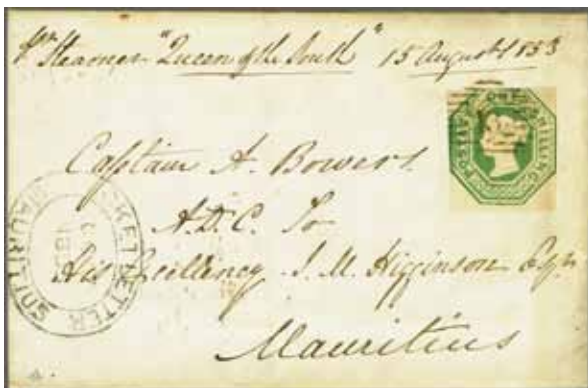 pr Steamer "Queen of the South" 15 August 1853
ONE SHILLING
POSTAGE
Captain A. Bowers
A.D.C. To
His Excellency J. M. Higginson Esqr
Mauritius
PACKET LETTER
MAURITIUS